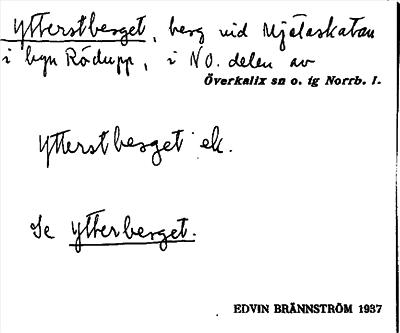 Ytterstberget, berg vid Mjölaskatan
i byn Rödupp, i NO. delen av
Överkalix sn o. tg Norrb. l.
Ytterstberget ek.
Se Ytterberget.
EDVIN BRÄNNSTRÖM 1937